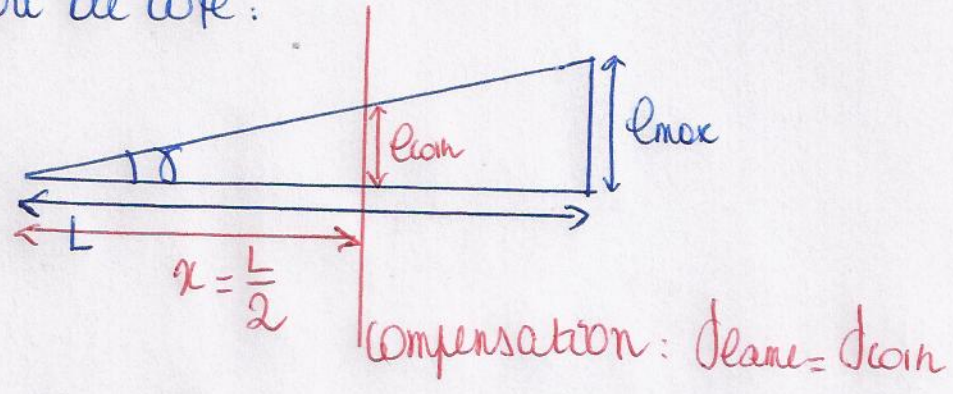 de côté :
e max
e coin
γ
L
x = L/2
compensation : δlame = δcoin